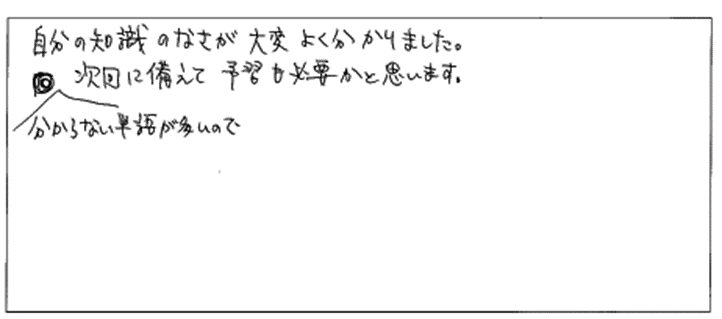 自分の知識のなさが大変よく分かりました。
次回に備えて予習も必要かと思います。
分からない単語が多いので